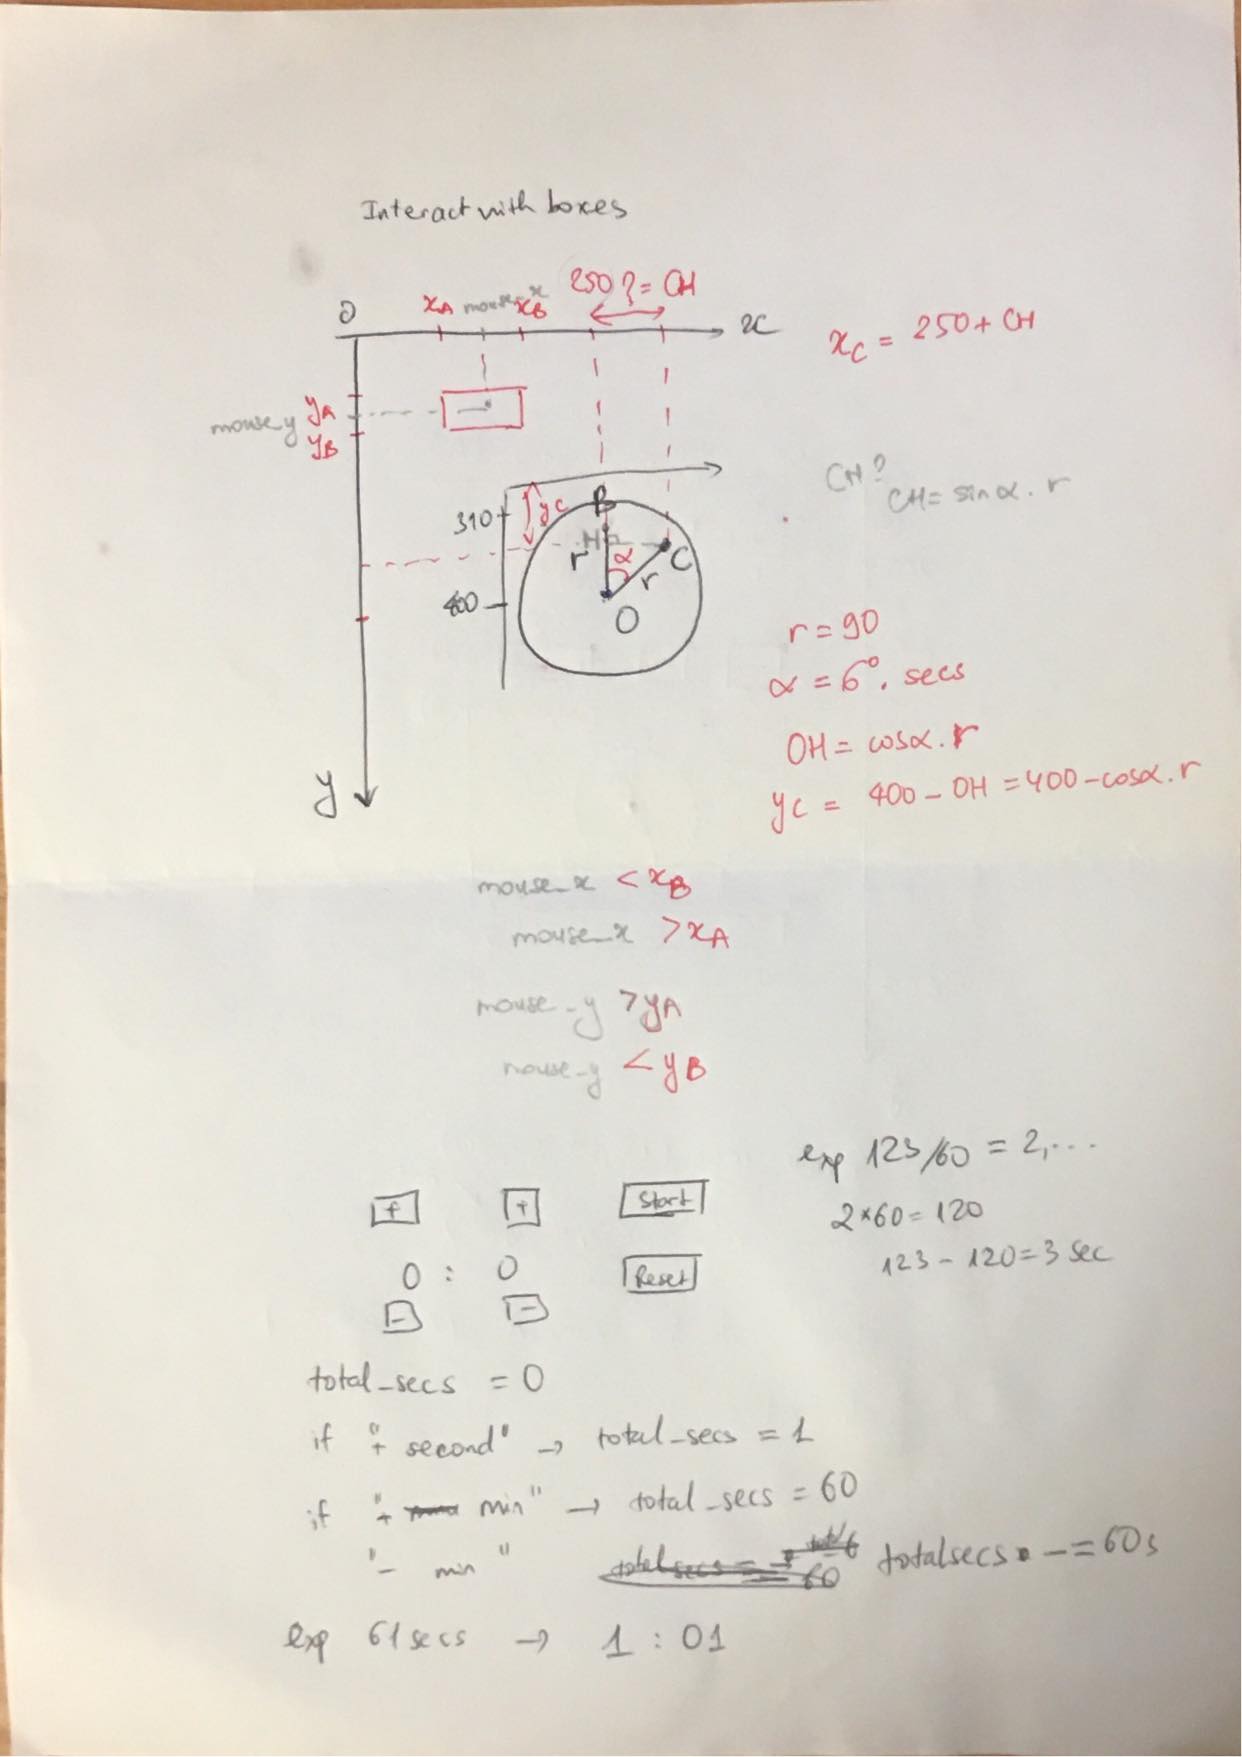 Interact with boxes
250 ? = CH
O xA mouse_x xB x
xC = 250 + CH
mouse_y yA
yB
CH?
CH = sinα . r
310 yC B
H
r α C
r
400
O
r = 90
α = 6°. secs
OH = cosα . r
y
yC = 400 - OH = 400 - cosα . r
mouse_x < xB
mouse_x > xA
mouse_y > yA
mouse_y < yB
exp 123/60 = 2,...
+ + Start
2*60 = 120
0 : 0 Reset
123 - 120 = 3 sec
- -
total_secs = 0
if "+ second" → total_secs = 1
if "+ min" → total_secs = 60
"- min" totalsecs -= 60s
exp 61 secs → 1 : 01